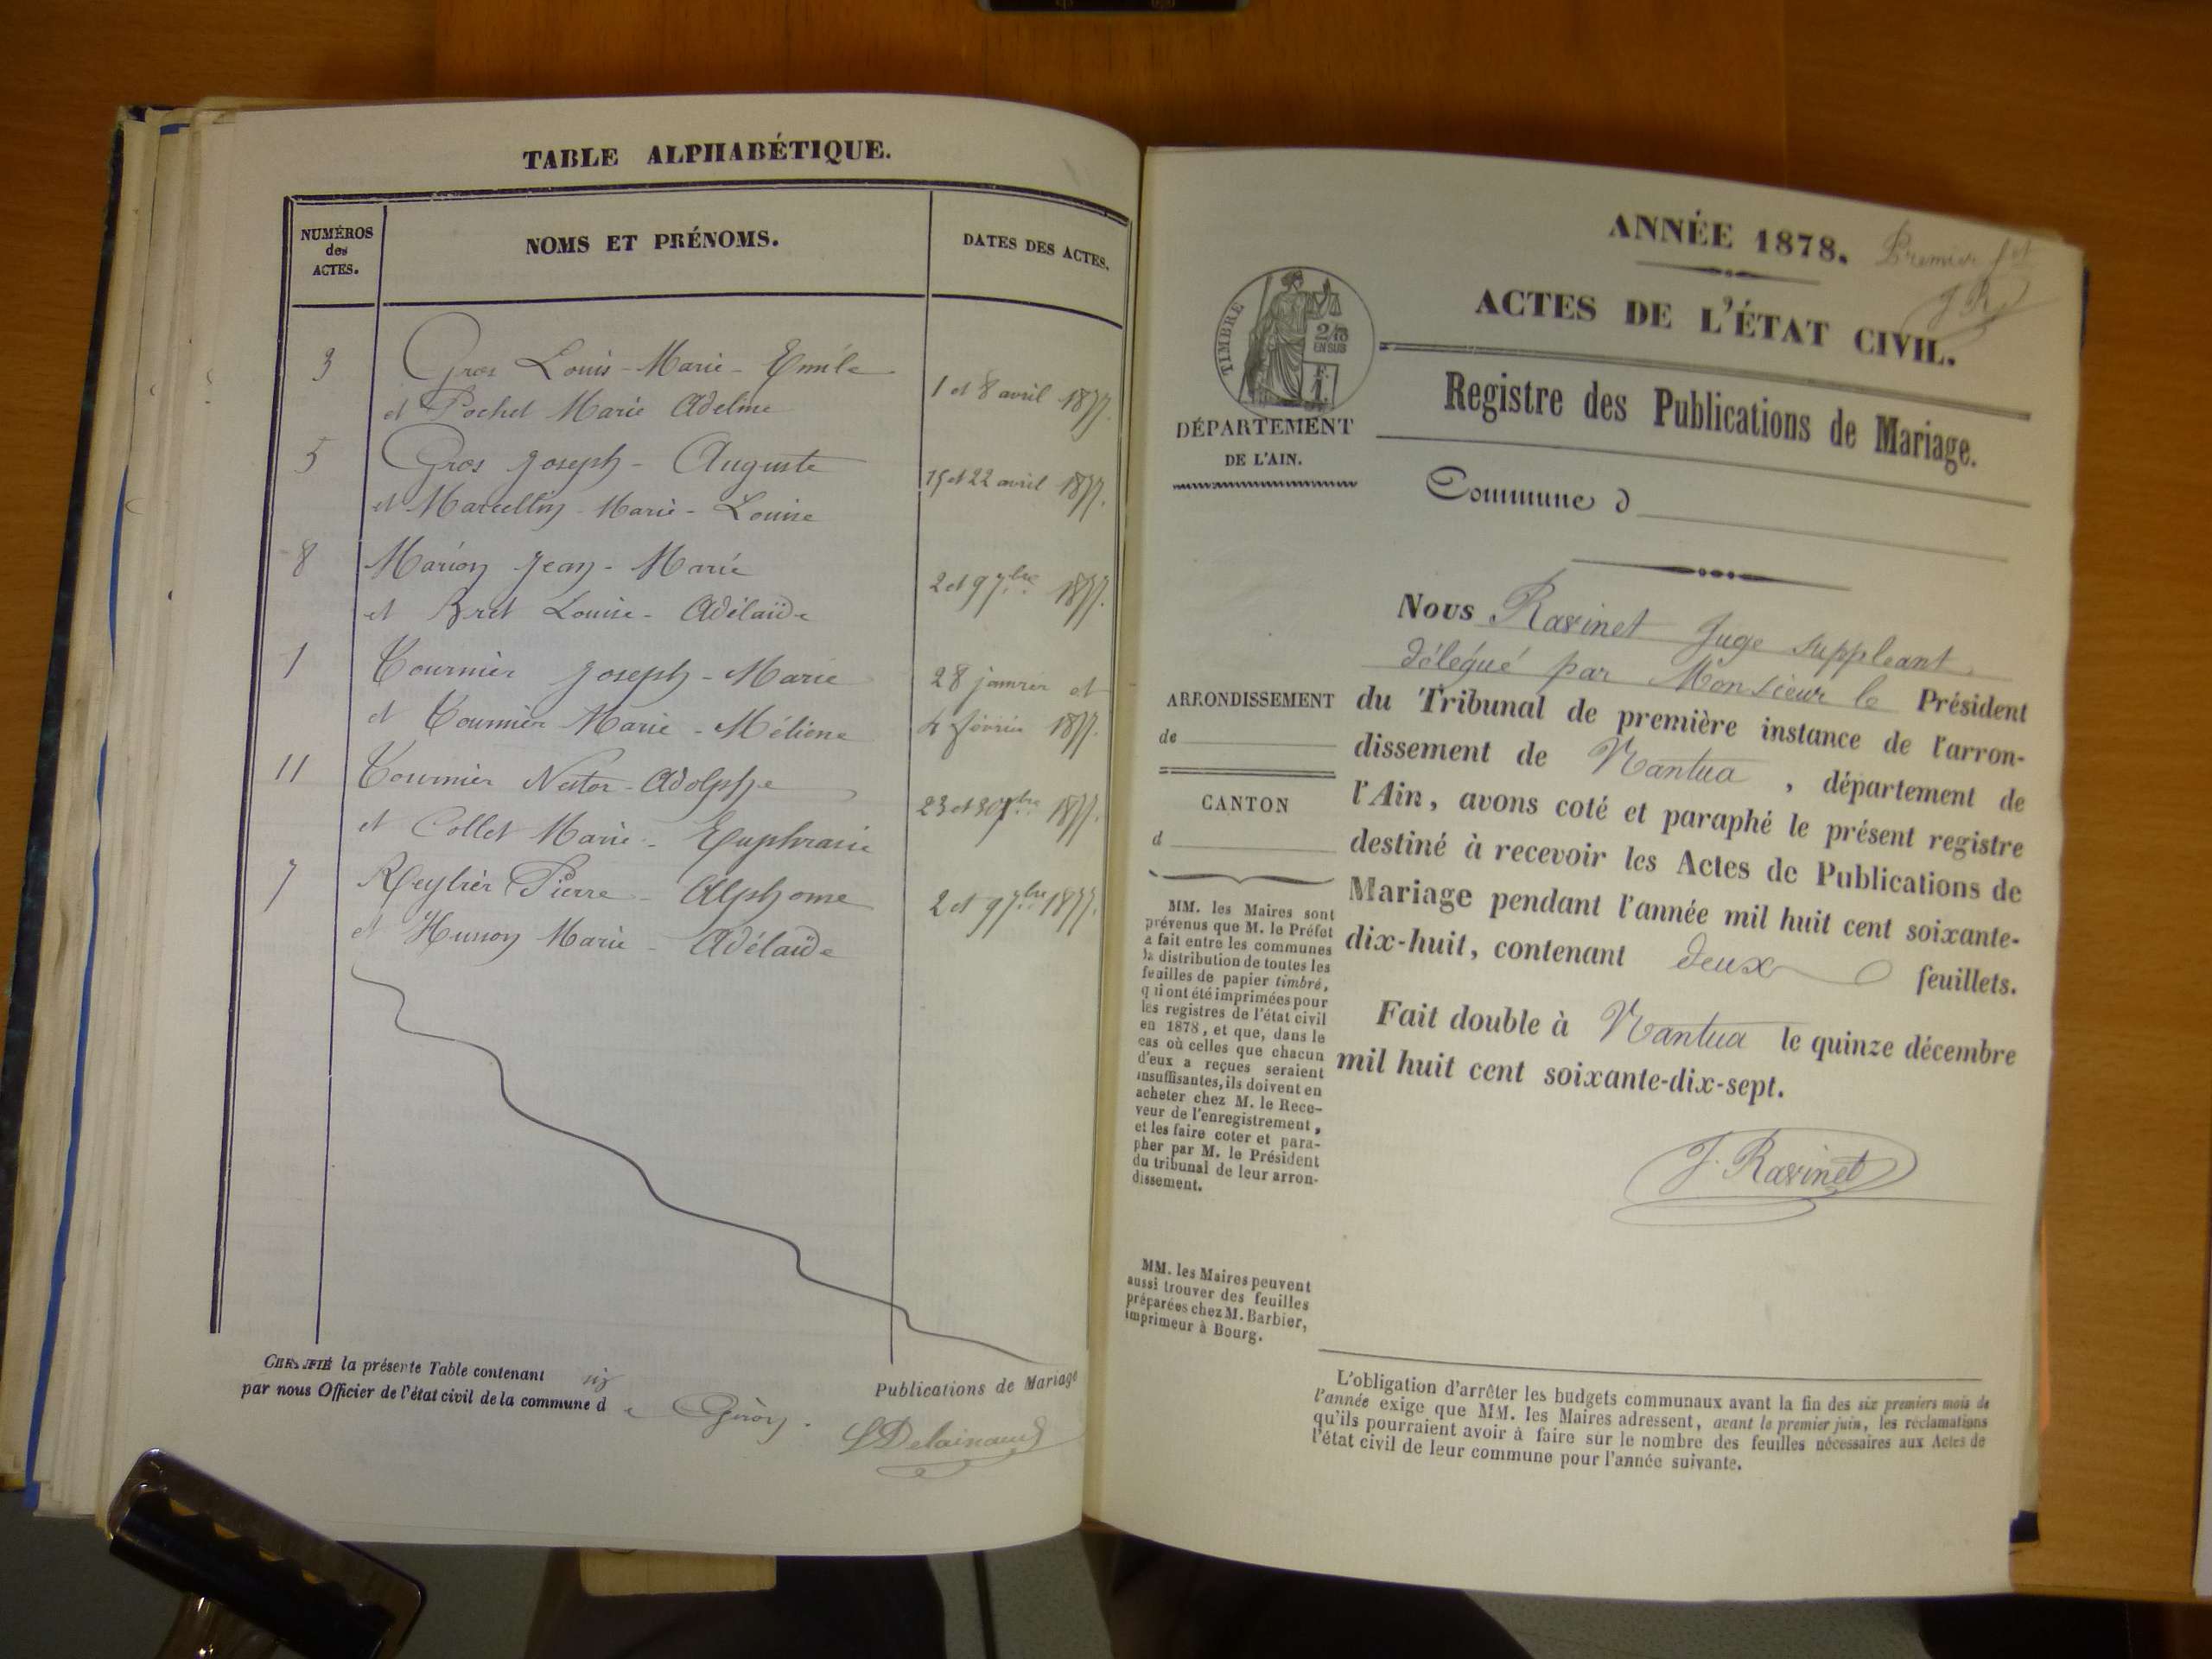 TABLE ALPHABÉTIQUE.
NUMÉROS
des
ACTES.
NOMS ET PRÉNOMS.
DATES DES ACTES.
3
Gros Louis-Marie-Emile
et Pochet Marie Adeline
1 et 8 avril 1877.
5
Gros Joseph-Auguste
et Marcellin Marie-Louise
15 et 22 avril 1877.
8
Marion Jean-Marie
et Bret Louise-Adélaïde
2 et 9 7bre 1877.
1
Tournier Joseph-Marie
et Tournier Marie-Méliene
28 janvier et
4 février 1877.
11
Tournier Nestor-Adolphe
et Collet Marie-Euphrasie
23 et 30 7bre 1877.
7
Reybier Pierre-Alphonse
et Husson Marie-Adélaïde
2 et 9 7bre 1877.
CERTIFIÉ la présente Table contenant six Publications de Mariage
par nous Officier de l'état civil de la commune de Giron.
ANNÉE 1878.
Premier fet
J R
ACTES DE L'ÉTAT CIVIL.
TIMBRE
2/10
EN SUS
F.
1.
Registre des Publications de Mariage.
DÉPARTEMENT
DE L'AIN.
Commune d
Nous Ravinet Juge suppleant
délégué par Monsieur le Président
du Tribunal de première instance de l'arron-
dissement de Nantua, département de
l'Ain, avons coté et paraphé le présent registre
destiné à recevoir les Actes de Publications de
Mariage pendant l'année mil huit cent soixante-
dix-huit, contenant deux feuillets.
Fait double à Nantua le quinze décembre
mil huit cent soixante-dix-sept.
J. Ravinet
ARRONDISSEMENT
de
CANTON
d
MM. les Maires sont
prévenus que M. le Préfet
a fait entre les communes
la distribution de toutes les
feuilles de papier timbré,
qui ont été imprimées pour
les registres de l'état civil
en 1878, et que, dans le
cas où celles que chacun
d'eux a reçues seraient
insuffisantes, ils doivent en
acheter chez M. le Rece-
veur de l'enregistrement,
et les faire coter et para-
pher par M. le Président
du tribunal de leur arron-
dissement.
MM. les Maires peuvent
aussi trouver des feuilles
préparées chez M. Barbier,
imprimeur à Bourg.
L'obligation d'arrêter les budgets communaux avant la fin des six premiers mois de
l'année exige que MM. les Maires adressent, avant le premier juin, les réclamations
qu'ils pourraient avoir à faire sur le nombre des feuilles nécessaires aux Actes de
l'état civil de leur commune pour l'année suivante.